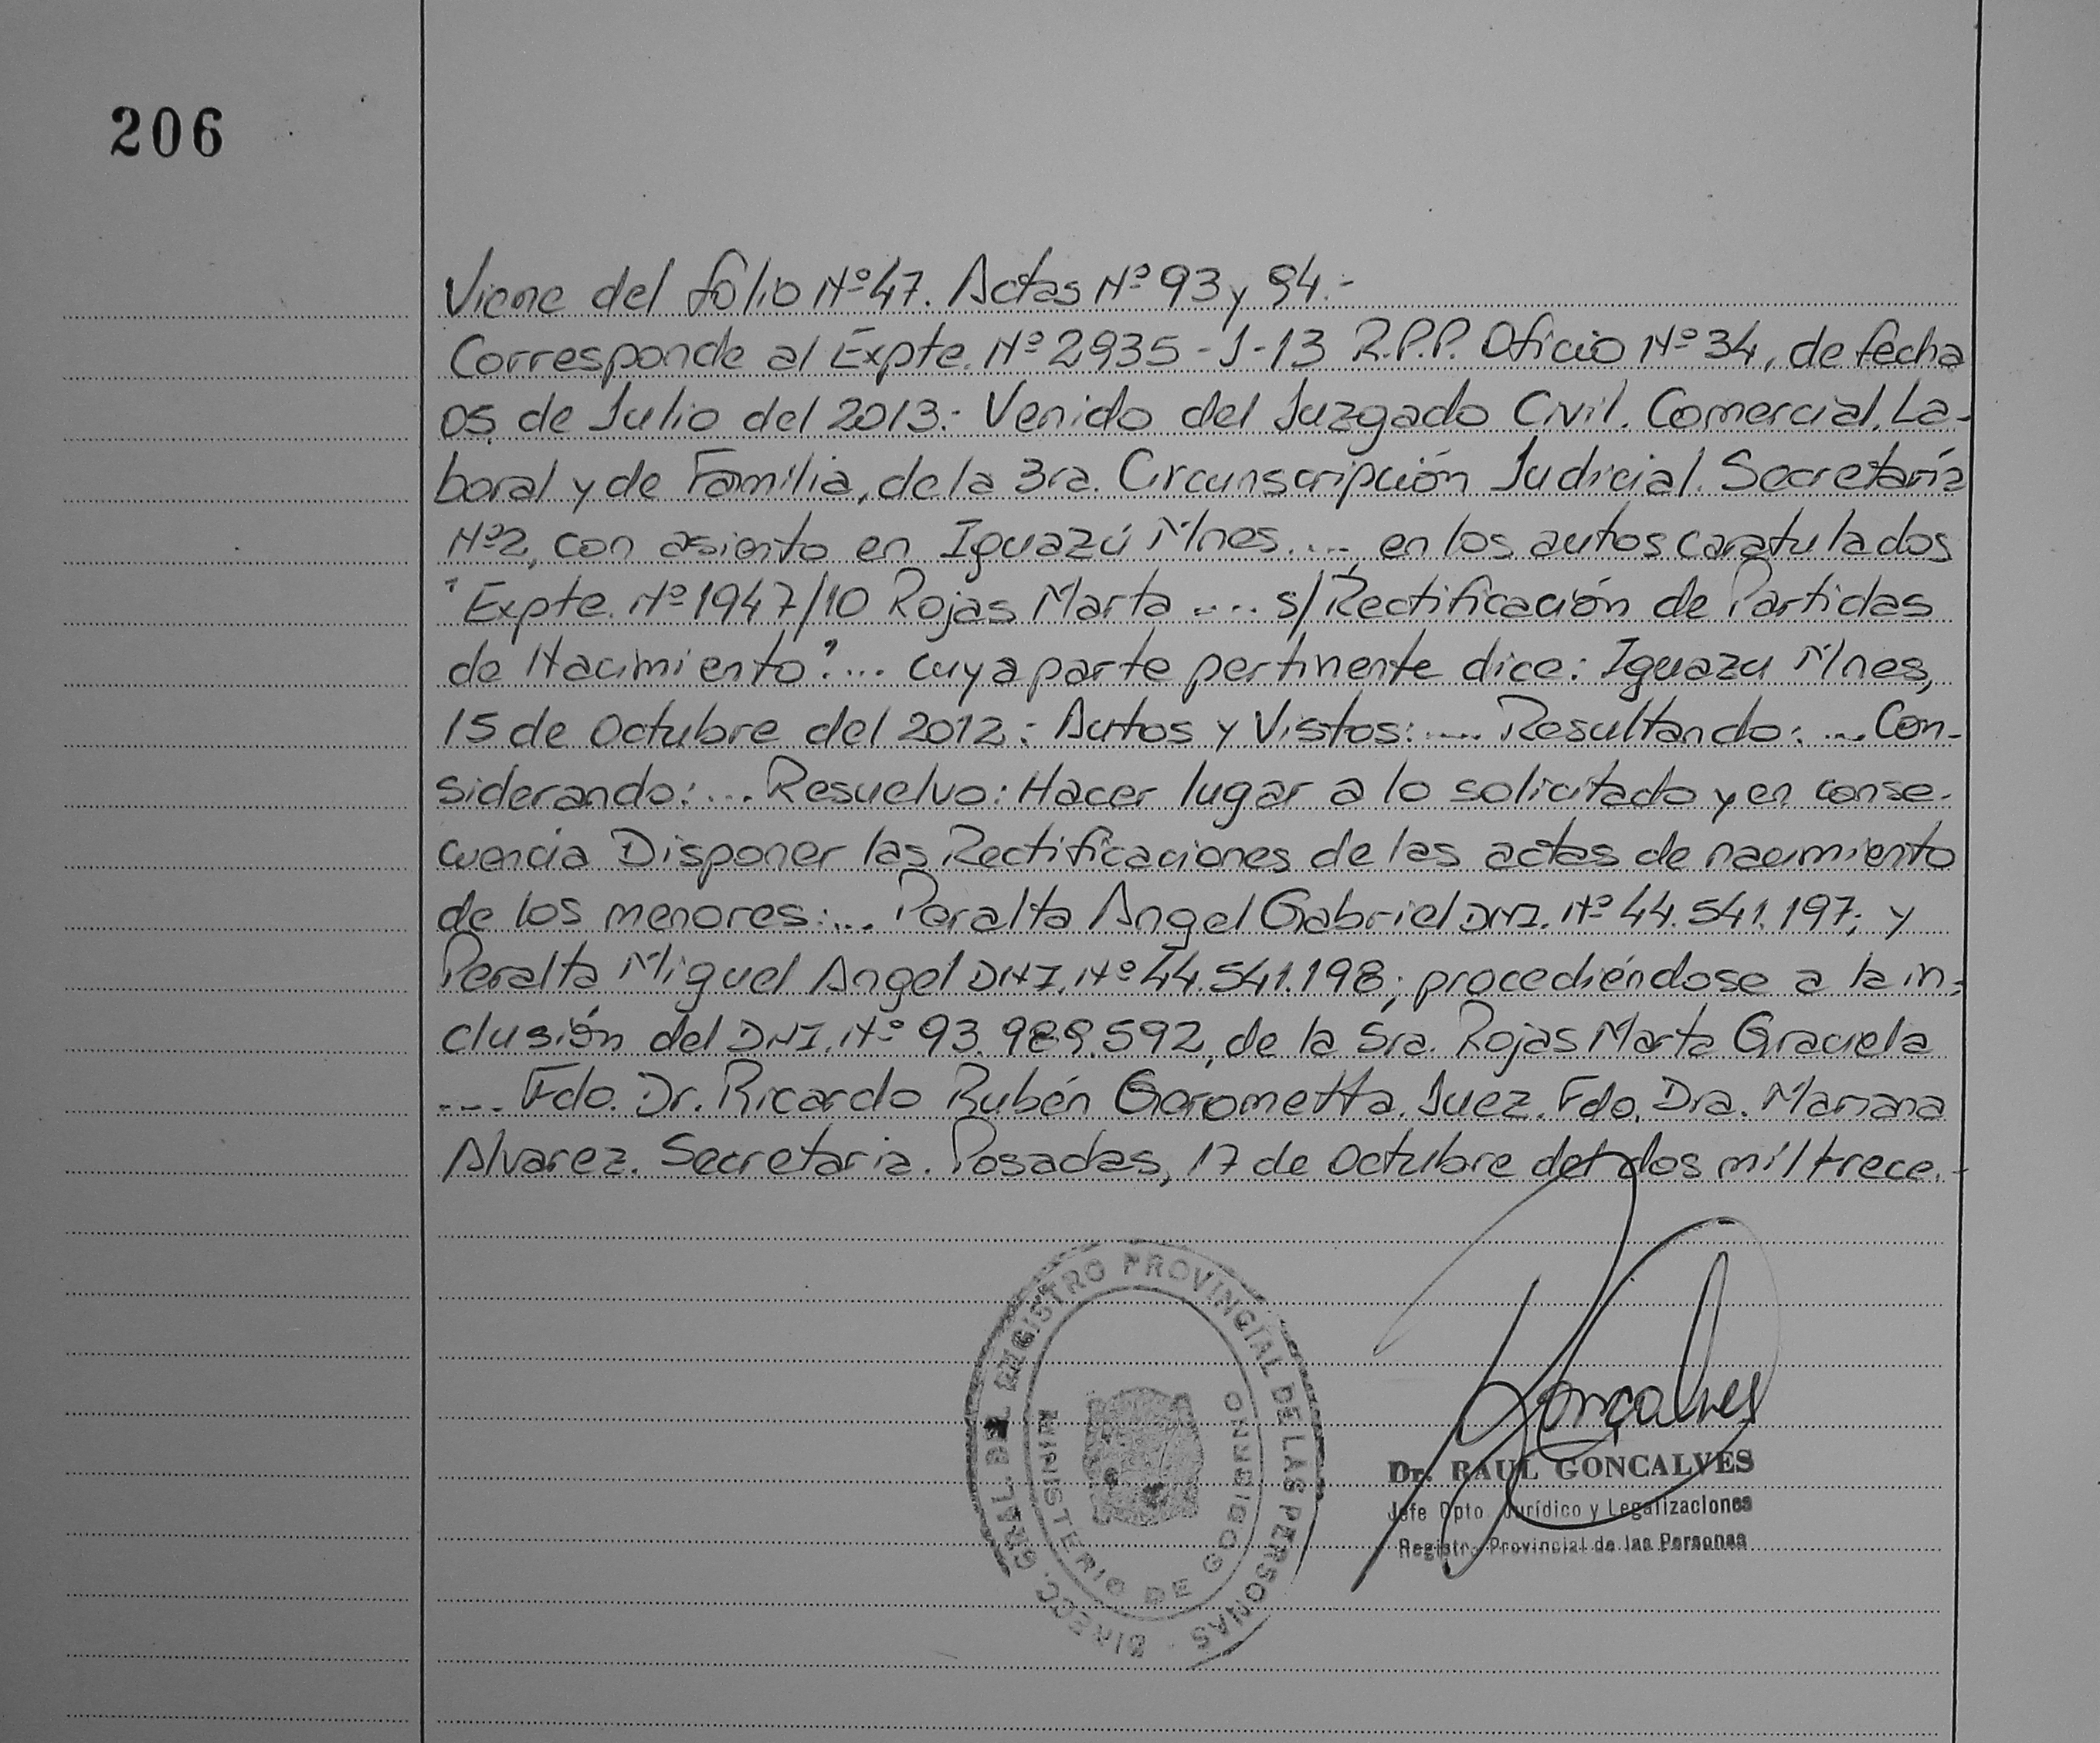 206
Viene del folio Nº 47. Actas Nº 93 y 94.-
Corresponde al Expte. Nº 2935-J-13 R.P.P. Oficio Nº 34, de fecha
05 de Julio del 2013.- Venido del Juzgado Civil. Comercial. La-
boral y de Familia, de la 3ra. Circunscripción Judicial. Secretaría
Nº2, con asiento en Iguazú Mnes...., en los autos caratulados
"Expte. Nº 1947/10 Rojas Marta .... s/Rectificación de Partidas
de Nacimiento"... cuya parte pertinente dice: Iguazu Mnes,
15 de Octubre del 2012.- Autos y Vistos:.... Resultando: ... Con-
siderando:... Resuelvo: Hacer lugar a lo solicitado y en conse-
cuencia Disponer las Rectificaciones de las actas de nacimiento
de los menores:... Peralta Angel Gabriel DNI. Nº 44.541.197; y
Peralta Miguel Angel DNI. Nº 44.541.198; procediéndose a la in-
clusión del DNI. Nº 93.989.592, de la Sra. Rojas Marta Graciela
.... Fdo. Dr. Ricardo Rubén Gorometta. Juez. Fdo. Dra. Mariana
Alvarez. Secretaria. Posadas, 17 de Octubre del dos mil trece.-
DIRECC. GRAL. DEL REGISTRO PROVINCIAL DE LAS PERSONAS
MINISTERIO DE GOBIERNO
Gonçalves
Dr. RAUL GONCALVES
Jefe Dpto. Jurídico y Legalizaciones
Registro Provincial de las Personas